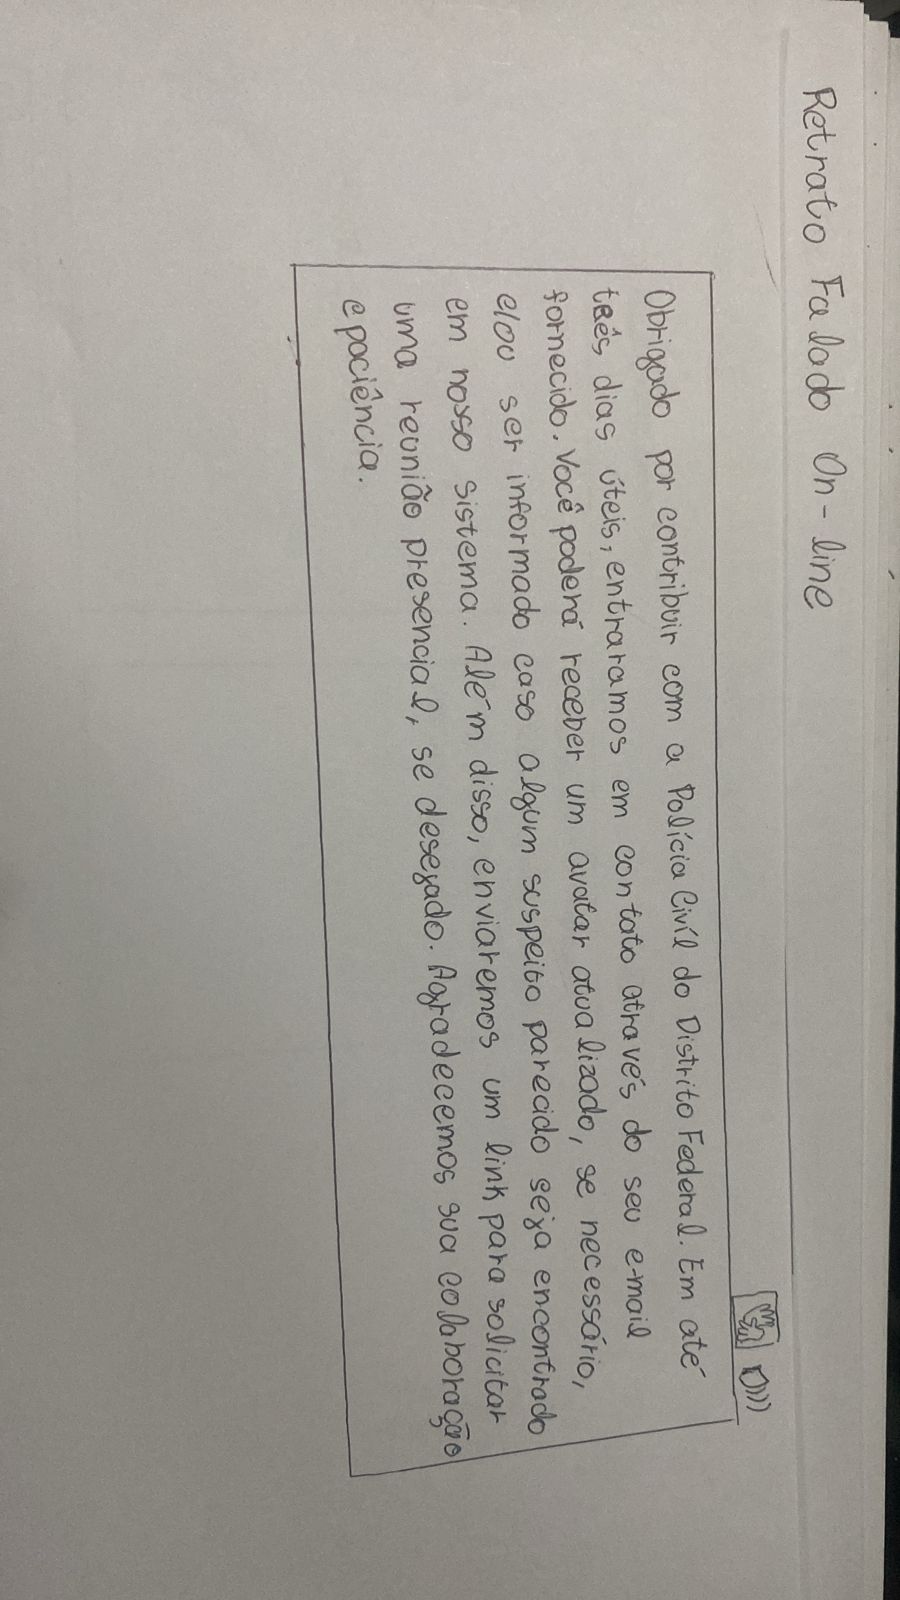 Retrato Falado On-line
Obrigado por contribuir com a Polícia Civíl do Distrito Federal. Em até
três dias úteis, entraramos em contato através do seu e-mail
fornecido. Você poderá receber um avatar atualizado, se necessário,
e/ou ser informado caso algum suspeito parecido seja encontrado
em nosso sistema. Além disso, enviaremos um link para solicitar
uma reunião presencial, se desejado. Agradecemos sua colaboração
e paciência.